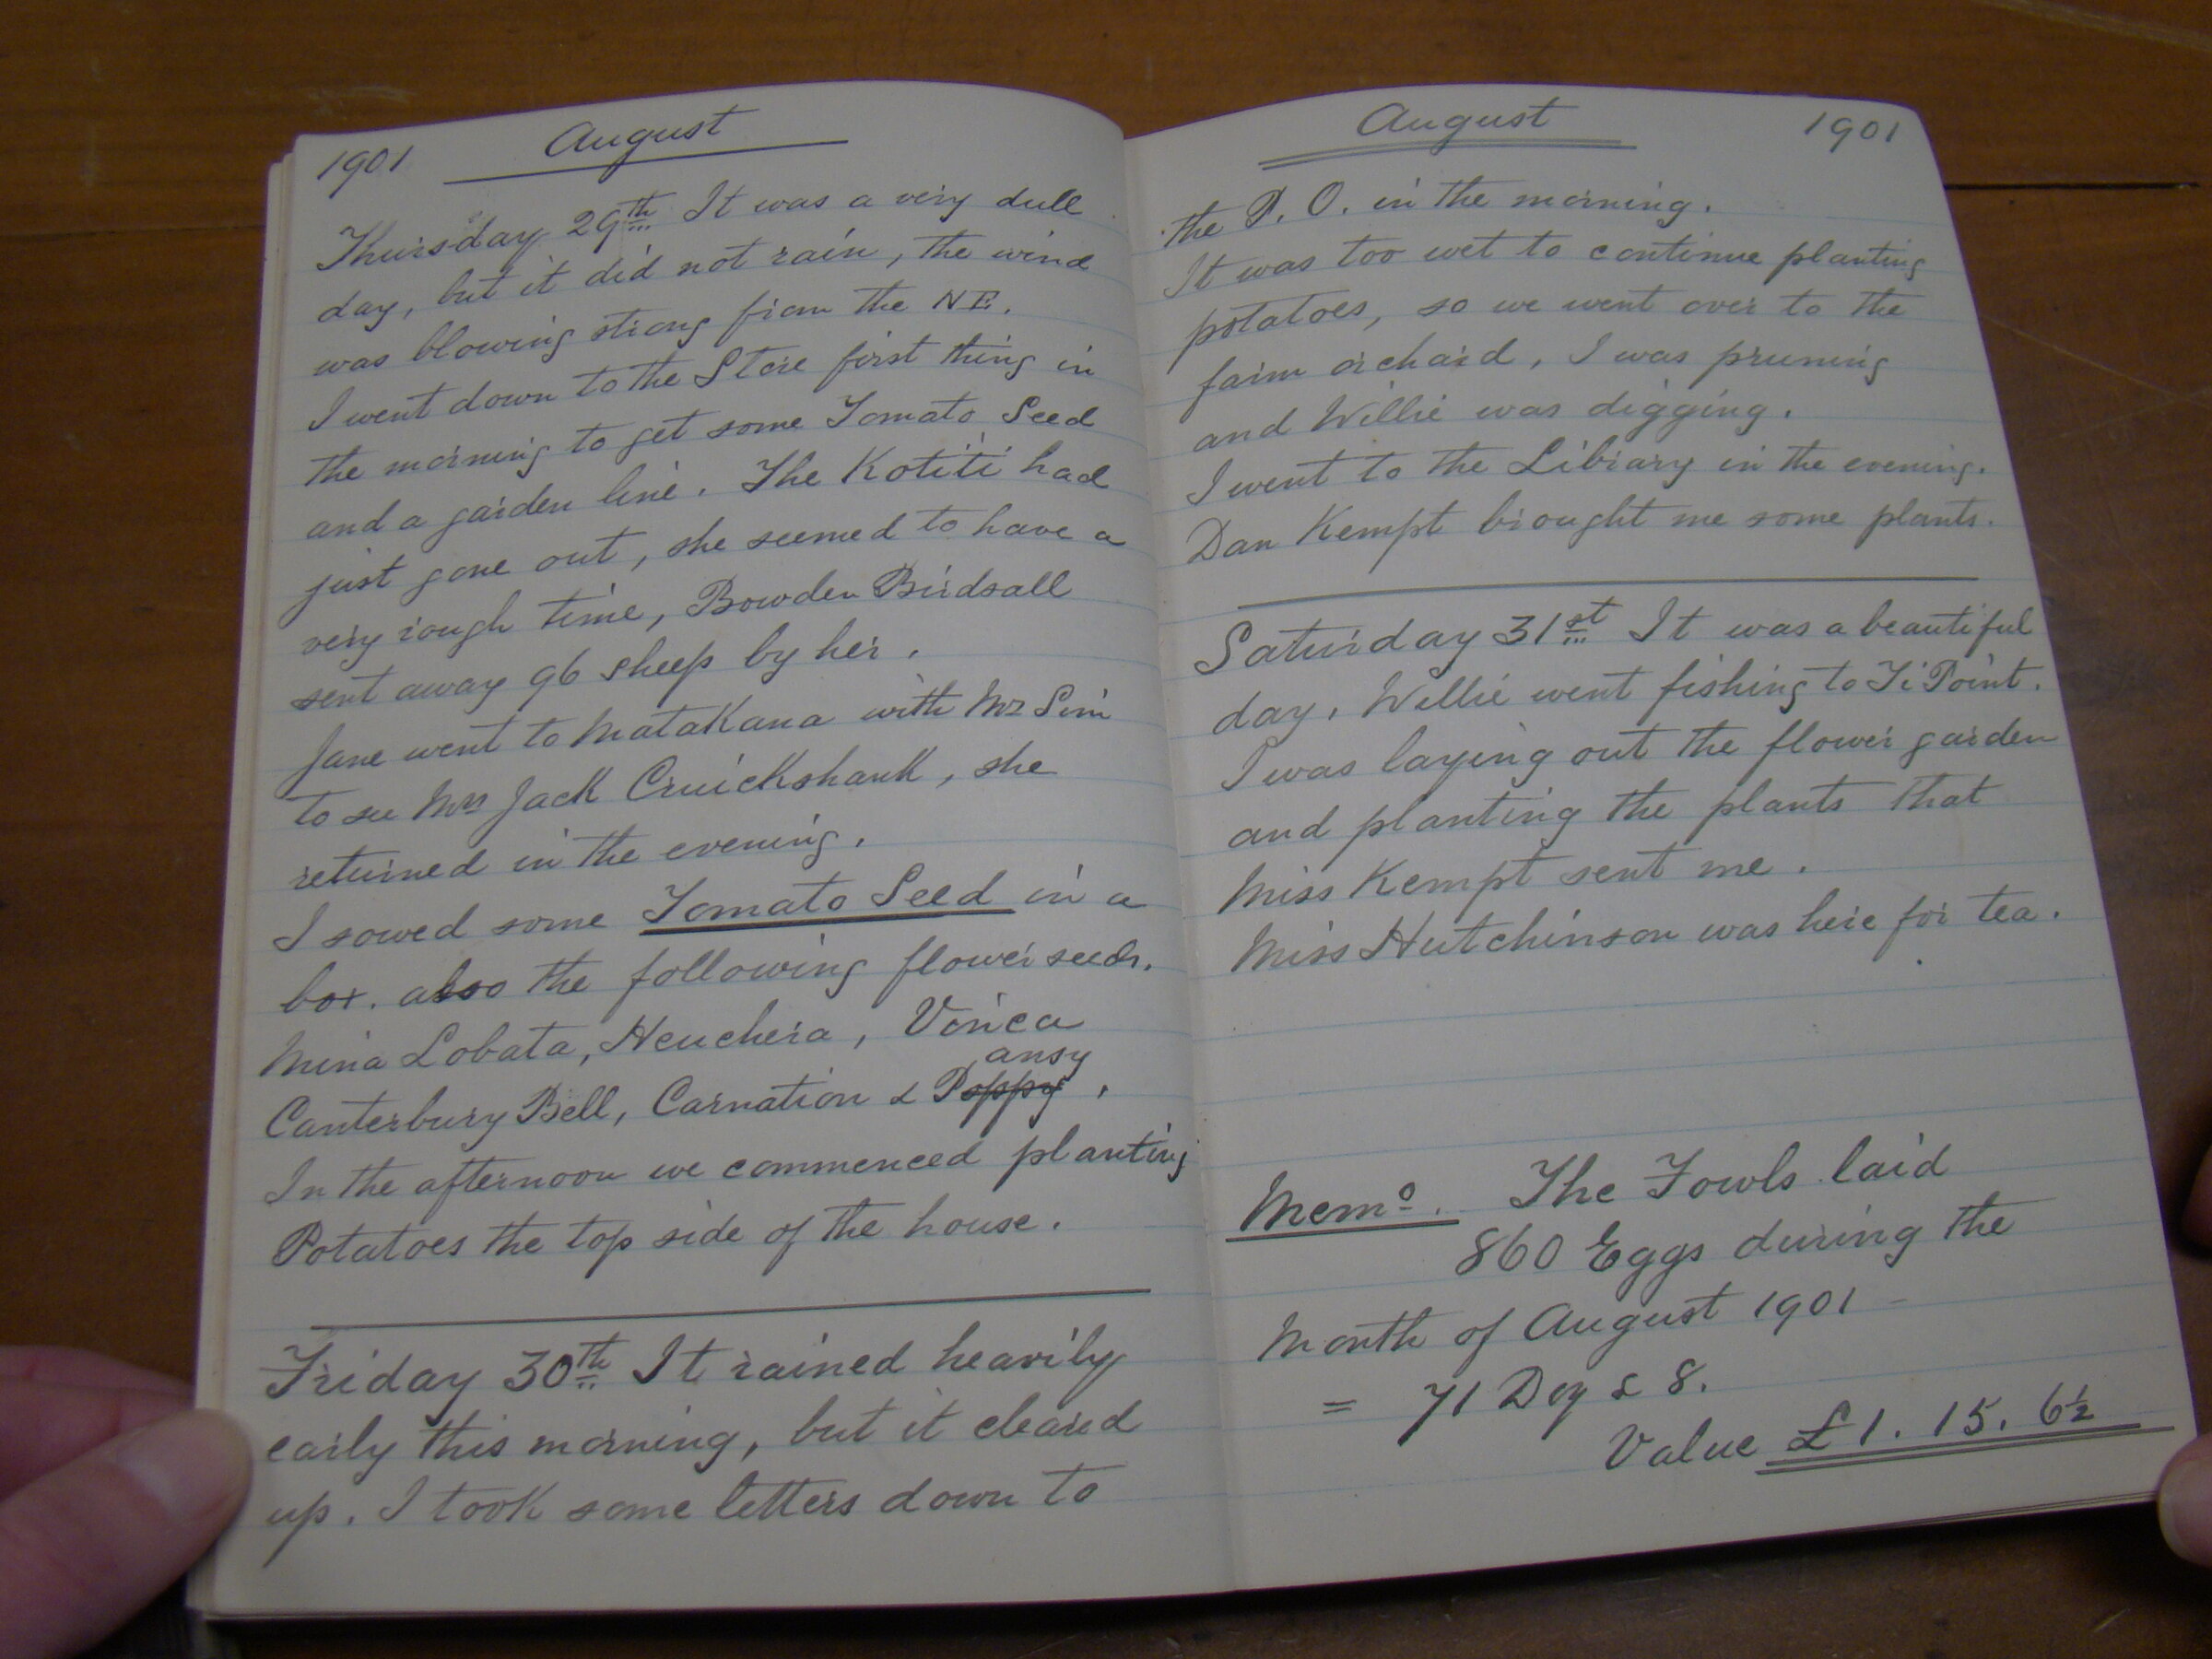 1901 August
Thursday 29th It was a very dull
day, but it did not rain, the wind
was blowing strong from the NE.
I went down to the Store first thing in
the morning to get some Tomato Seed
and a garden line. The Kotiti had
just gone out, she seemed to have a
very rough time, Bowden Birdsall
sent away 96 sheep by her.
Jane went to Matakana with Mr Sim
to see Mrs Jack Cruickshank, she
returned in the evening.
I sowed some Tomato Seed in a
box. also the following flower seeds.
Mina Lobata, Heuchera, Vinca
ansy
Canterbury Bell, Carnation & Poppy.
In the afternoon we commenced planting
Potatoes the top side of the house.
Friday 30th It rained heavily
early this morning, but it cleared
up. I took some letters down to
August 1901
the P. O. in the morning.
It was too wet to continue planting
potatoes, so we went over to the
farm orchard, I was pruning
and Willie was digging.
I went to the Library in the evening.
Dan Kempt brought me some plants.
Saturday 31st It was a beautiful
day. Willie went fishing to Ti Point.
I was laying out the flower garden
and planting the plants that
Miss Kempt sent me.
Miss Hutchinson was here for tea.
Memo. The Fowls laid
860 Eggs during the
Month of August 1901
= 71 Doz & 8.
Value £1. 15. 6½